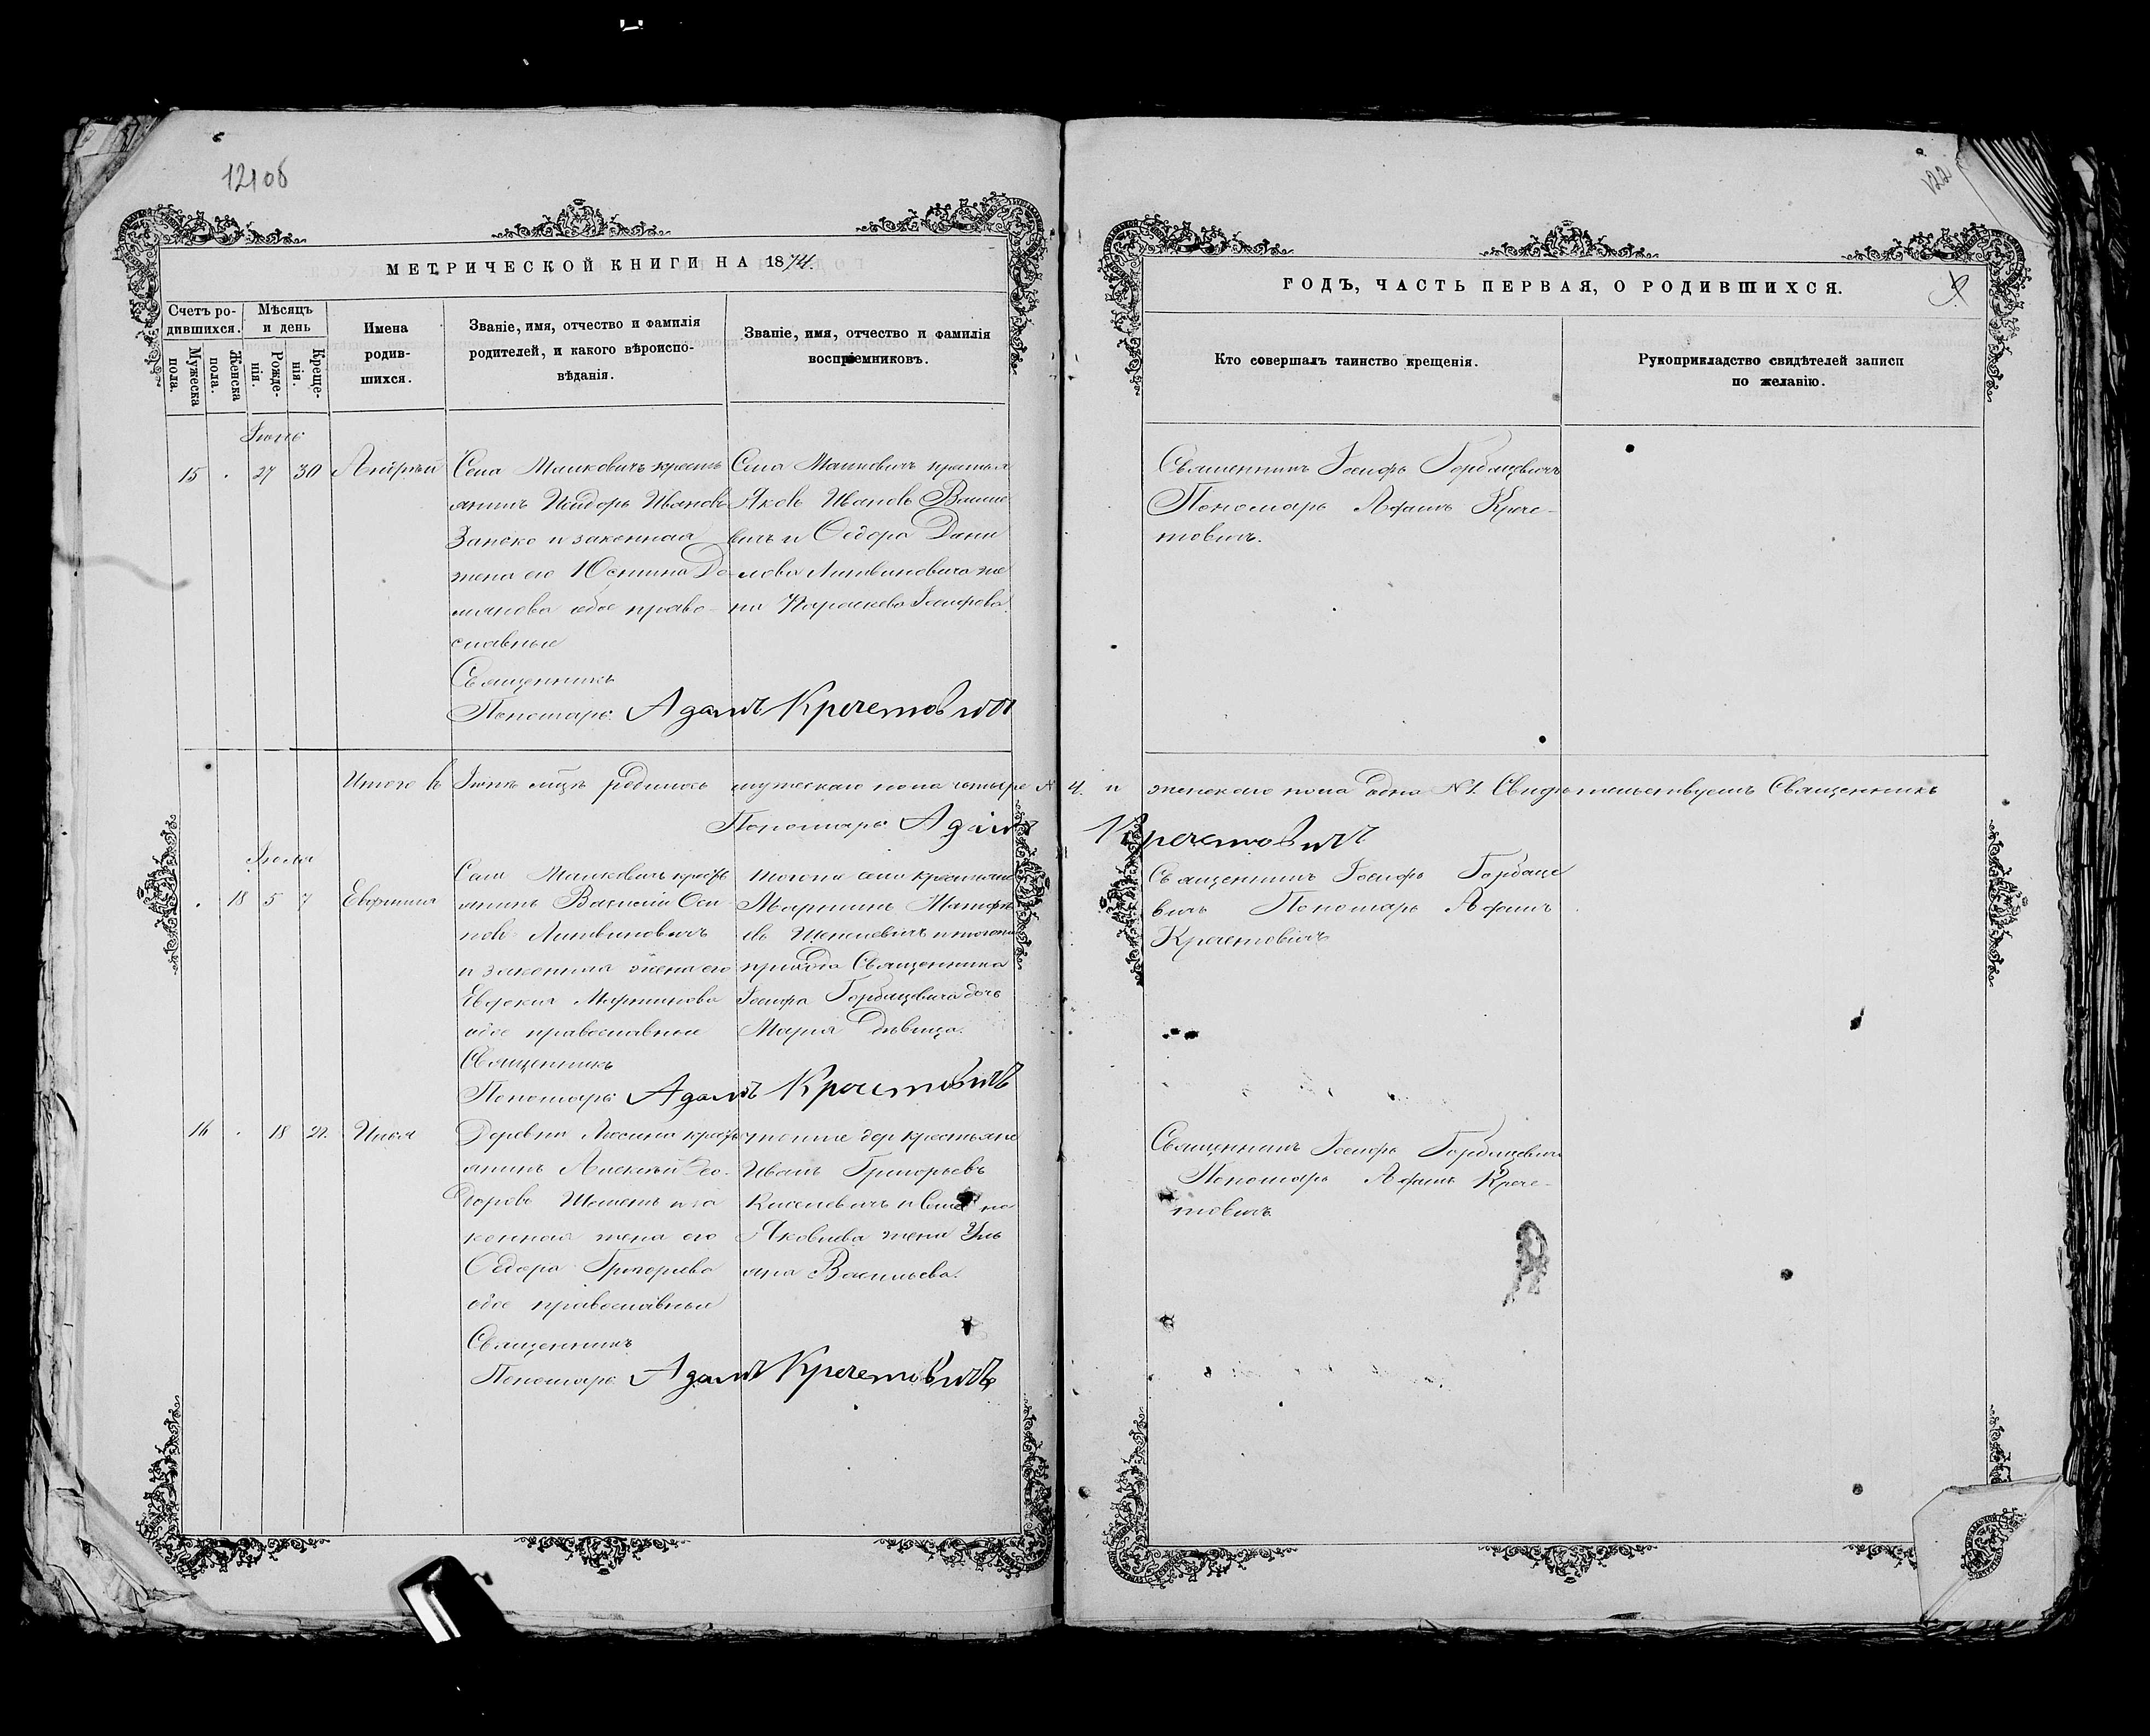 121об
122
МЕТРИЧЕСКОЙ КНИГИ НА 1874
Счетъ ро-
дившихся.
Мужеска
пола.
Женска
пола.
Мѣсяцъ
и день
Рожде-
нія.
Креще-
нія.
Имена
родив-
шихся.
Званіе, имя, отчество и фамилія
родителей, и какого вѣроиспо-
вѣданія.
Званіе, имя, отчество и фамилія
воспріемниковъ.
Іюнь
15 . 27 30 Андрей
Села Малковичъ кресть
янинъ Исидоръ Ивановъ
Занько и законная
жена его Юстина Да
миянова обое право-
славные
Священникъ
Пономарь Адамъ Кречетовичъ
Села Малковичъ крестья
Яковъ Ивановъ
вичъ и Ѳедора Дани
лова Литвиновича же
на Параскева Іосифова.
Итого въ Іюнѣ мцѣ родилось мужескаго пола четыре N
Пономарь Адамъ
Іюль
. 18 5 7 Евфимия
Села Малковичъ крест
янинъ Василій Оси
повъ Литвиновичъ
и законная жена его
Евдокия Мартинова
обое православные
Священникъ
Пономарь Адамъ Кречетовичъ
тогоже села крестьяни
Мартинъ
евъ и тогоже
прихода Священника
Іосифа Горбацевича дочь
Мария дѣвица.
16 . 18 21. Илья
Деревни Люсина крест
янинъ Алексѣй Ѳео-
доровъ и за
конная жена его
Ѳедора Григорьева
обое православные
Священникъ
Пономарь Адамъ Кречетовичъ
тойже дер крестьяне
Иванъ Григорьевъ
Киселевичъ и
Яковлева жена Уль
яна Васильева.
ГОДЪ, ЧАСТЬ ПЕРВАЯ, О РОДИВШИХСЯ.
Кто совершалъ таинство крещенія.
Рукоприкладство свидѣтелей записи
по желанію.
Священникъ Іосифъ Горбацевичъ
Пономарь Адамъ Крече-
товичъ.
4. и женскаго пола одна N 1. Свидѣтельствуемъ Священникъ
Кречетовичъ
Священникъ Іосифъ Горбаце
вичъ Пономарь Адамъ
Кречетовичъ
Священникъ Іосифъ Горбацевичъ
Пономарь Адамъ Крече-
товичъ